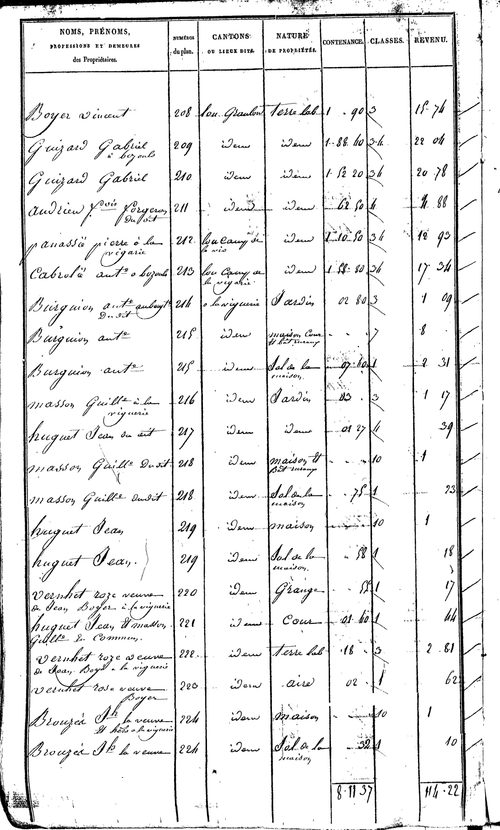 NOMS, PRÉNOMS, PROFESSIONS ET DEMEURES des Propriétaires. NUMÉROS du plan. CANTONS OU LIEUX DITS. NATURE DE PROPRIÉTÉS. CONTENANCE. CLASSES. REVENU.
Boyer vincent 208 lou Graubou terre lab 1 . 90 3 15 74
Guizard Gabriel 209 idem idem 1 88 60 34 22 04
à bozouls
Guizard Gabriel 210 idem idem 1 52 20 34 20 78
andrieu f.ois forgeron 211 idem idem 62 50 4 4 88
Du dit
panassié pierre à la 212 lou camp de idem 1 10 50 34 12 93
vigarie la vio
Cabrolié ant.e a bozouls 213 lou Camp de idem 1 58 80 34 17 34
la vigarie
Burguion ant.e 214 a la viguerie Jardin 02 80 3 1 09
Du dit
Burguion ant.e 215 idem maison Cour 7 8
Burguion ant.e 215 idem Sol de la 07 60 1 2 31
maison
masson Guill.e à la 216 idem Jardin 03 . 3 1 17
viguerie
huguet Jean du dit 217 idem idem 01 27 4 39
masson Guill.e Du dit 218 idem maison et 10 1
masson Guill.e du dit 218 idem Sol de la 75 1 23
maison
huguet Jean 219 idem maison 10 1
huguet Jean 219 idem Sol de la 58 1 18
maison
vernhet roze veuve 220 idem Grange 55 1 17
de Jean Boyer à la viguerie
huguet Jean et masson 221 idem Cour 01 60 1 44
Guill.e En Commun
vernhet roze veuve 222 idem terre lab 18 . 3 2 81
de Jean Boyer a la viguerie
vernhet rose veuve 223 idem aire 02 . 1 62
Boyer
Brouzée J.h la veuve 224 idem maison 10 1
Brouzée J.h la veuve 224 idem Sol de la 32 1 10
maison
8 11 37 114 . 22